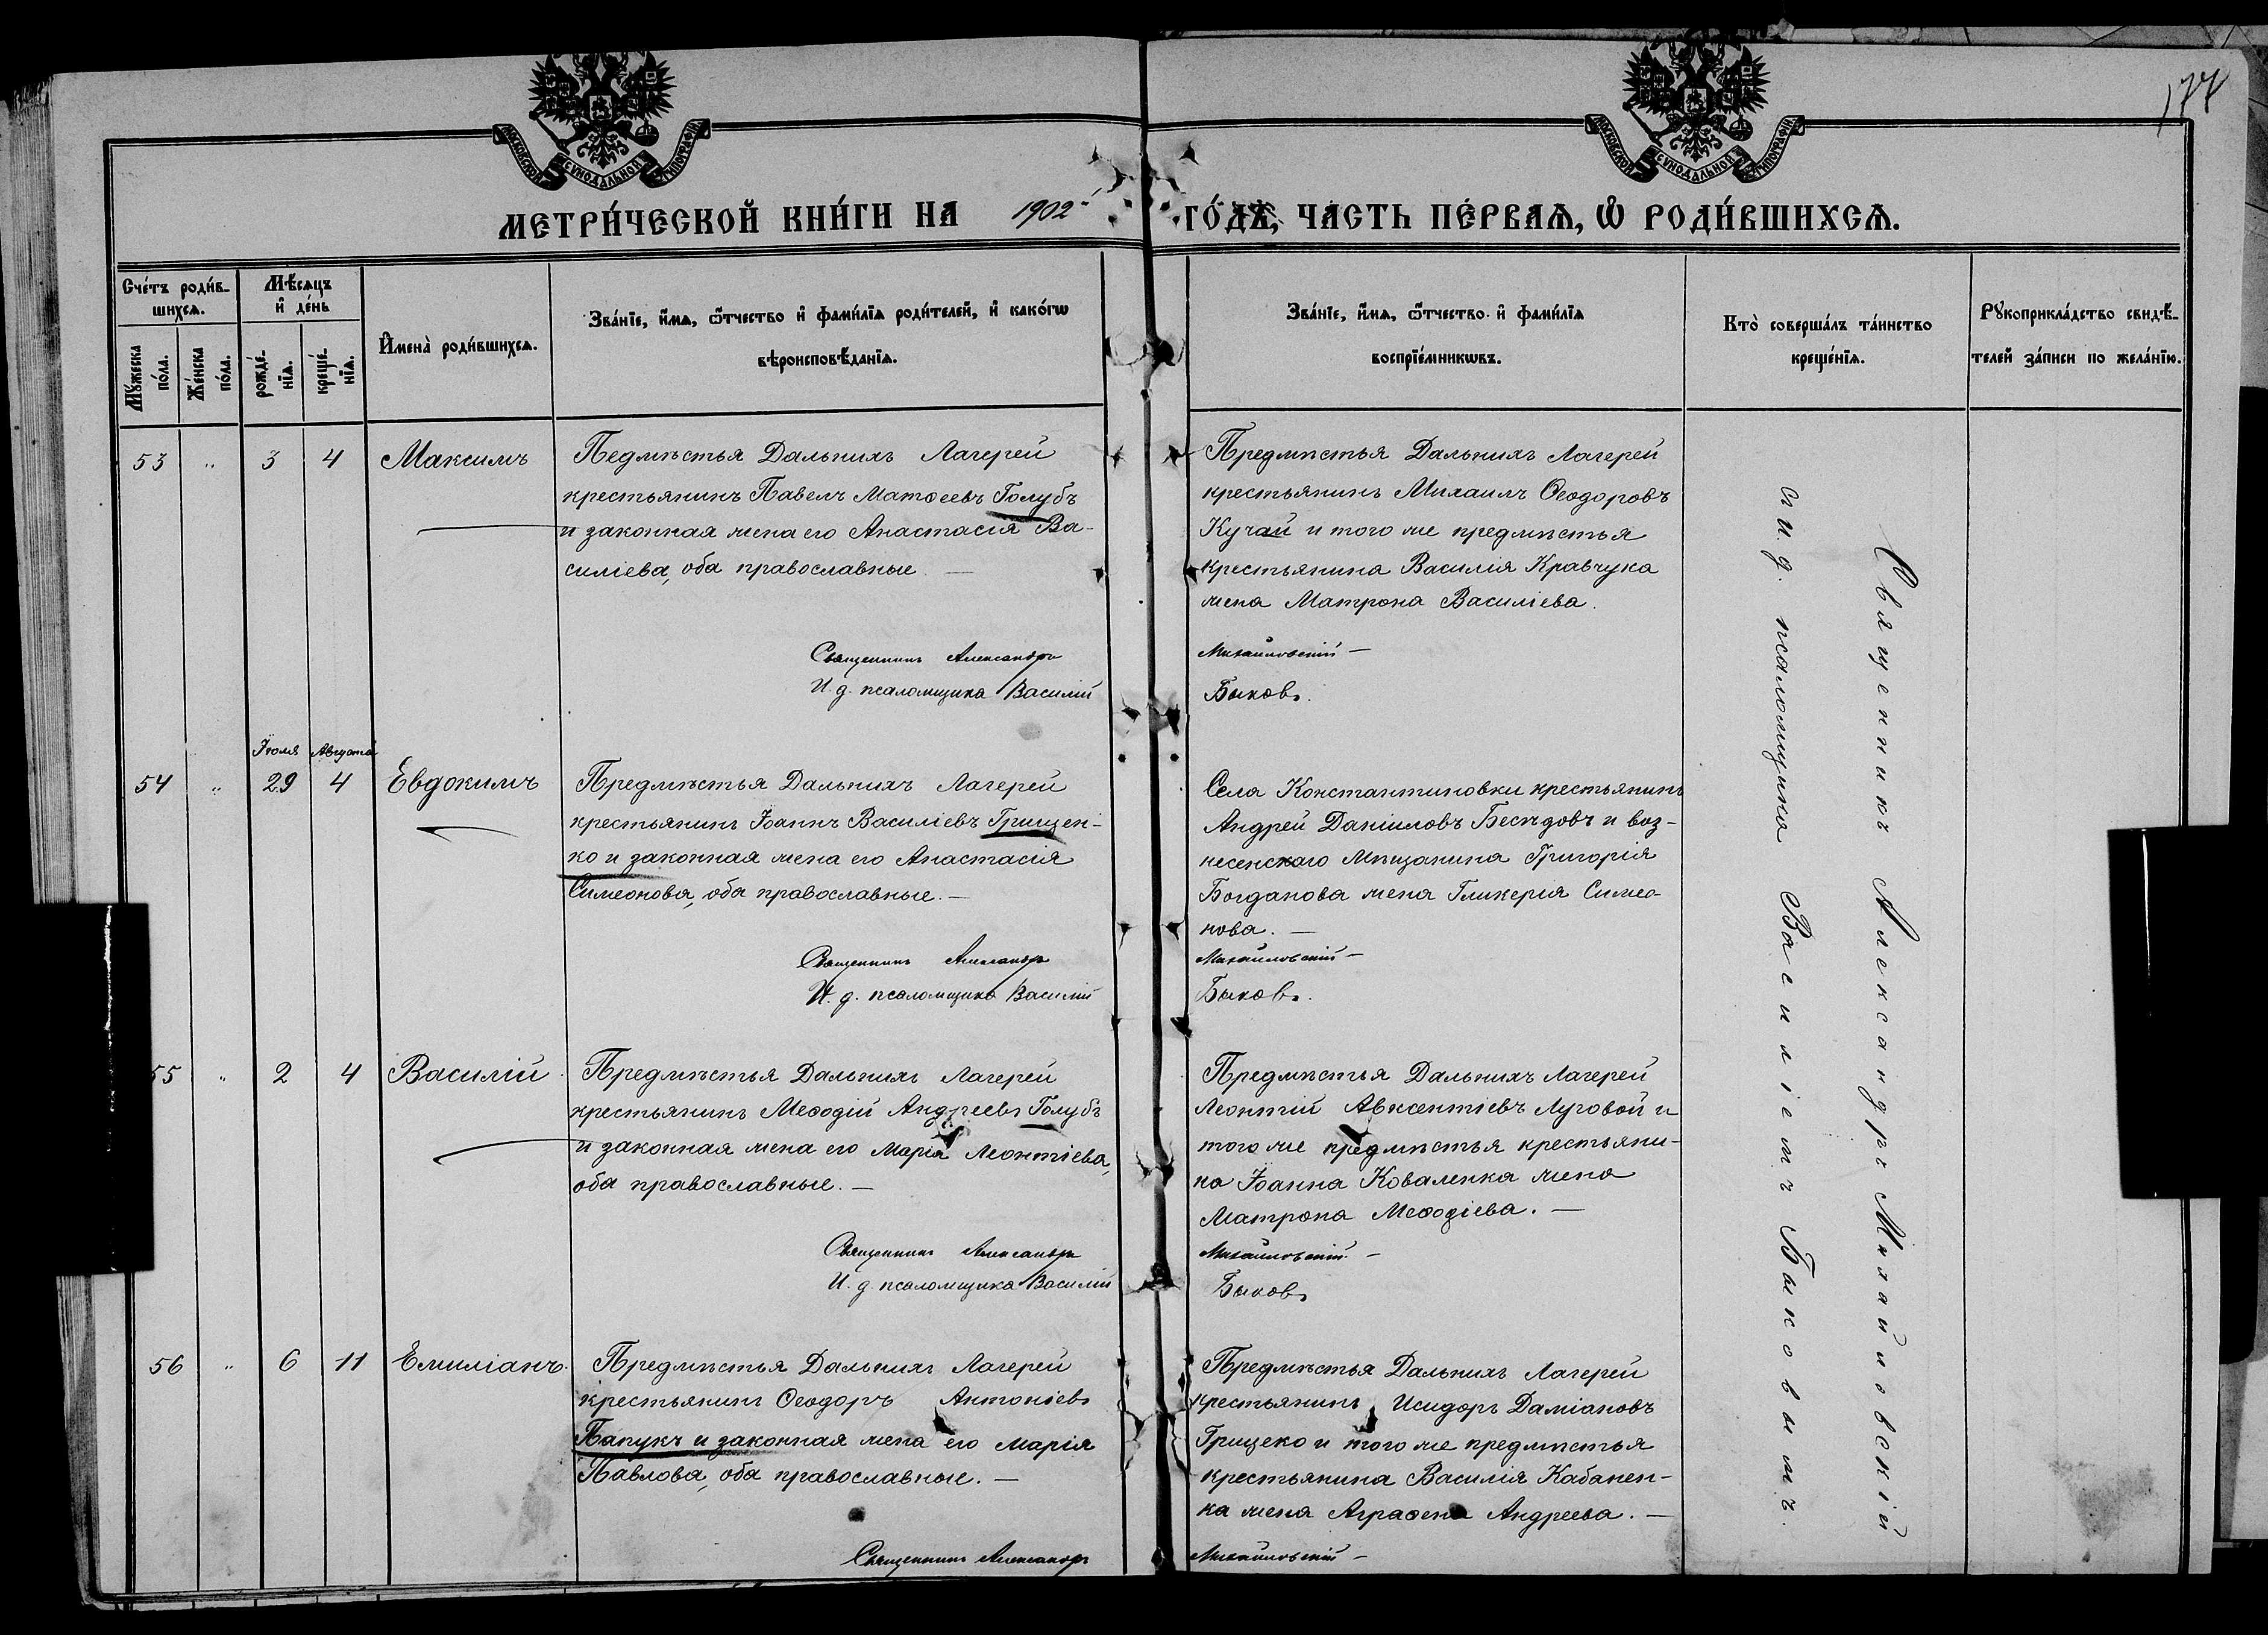 177
МОСКОВСКОЙ СУНОДАЛЬНОЙ ТИПОГРАФІИ
МОСКОВСКОЙ СУНОДАЛЬНОЙ ТИПОГРАФІИ
МЕТРИ́ЧЕСКОЙ КНИ́ГИ НА 1902 ГО́ДЪ, ЧАСТЬ ПЕ́РВАѦ, Ѿ РОДИ́ВШИХСѦ.
Сче́тъ роди́в-
шихсѧ.
Мѣ́сѧцъ
и҆ де́нь
Мꙋ́жеска
по́ла.
Же́нска
по́ла.
рожде́-
нїѧ.
креще́-
нїѧ.
И҆мена̀ роди́вшихсѧ.
Зва́нїе, и҆́мѧ, ѻ҆́тчество и҆ фами́лїѧ роди́телей, и҆ како́гѡ
вѣроисповѣ́данїѧ.
Зва́нїе, и҆́мѧ, ѻ҆́тчество и҆ фами́лїѧ
воспрїе́мникѡвъ.
Кто̀ соверша́лъ та́инство
креще́нїѧ.
Рꙋкоприкла́дство свидѣ́-
телей за́писи по жела́нїю.
53 " 3 4 Максимъ
Педмѣстья Дальнихъ Лагерей
крестьянинъ Павелъ Матѳеевъ Голубъ
и законная жена его Анастасія Ва-
силіева, оба православные —
Священникъ Александръ
И. д. псаломщика Василій
Предмѣстья Дальнихъ Лагерей
крестьянинъ Михаилъ Ѳеодоровъ
Кучай и того же предмѣстья
крестьянина Василія Кравчука
жена Матрона Василіева.
Михайловскій —
Быковъ.
54 " Іюля 29 Августа 4 Евдокимъ
Предмѣстья Дальнихъ Лагерей
крестьянинъ Іоаннъ Василіевъ Грищен-
ко и законная жена его Анастасія
Симеонова, оба православные. —
Священникъ Александръ
И. д. псаломщика Василій
Села Константиновки крестьянинъ
Андрей Даніиловъ Бесѣдовъ и воз-
несенскаго мѣщанина Григорія
Богданова жена Гликерія Симео-
нова. —
Михайловскій —
Быковъ.
55 " 2 4 Василій
Предмѣстья Дальнихъ Лагерей
крестьянинъ Меѳодій Андреевъ Голубъ
и законная жена его Марія Леонтіева,
оба православные. —
Священникъ Александръ
И. д. псаломщика Василій
Предмѣстья Дальнихъ Лагерей
Леонтій Авксентіевъ Луговой и
того же предмѣстья крестьяни-
на Іоанна Коваленка жена
Матрона Меѳодіева. —
Михайловскій —
Быковъ
56 " 6 11 Емиліанъ.
Предмѣстья Дальнихъ Лагерей
крестьянинъ Ѳеодоръ Антоніевъ
Папукъ и законная жена его Марія
Павлова, оба православные. —
Священникъ Александръ
Предмѣстья Дальнихъ Лагерей
крестьянинъ Исидоръ Даміановъ
Грицеко и того же предмѣстья
крестьянина Василія Кабанен-
ка жена Аграѳена Андреева. —
Михайловскій —
Священникъ Александръ Михайловскій
съ и. д. псаломщика Василіемъ Быковымъ.